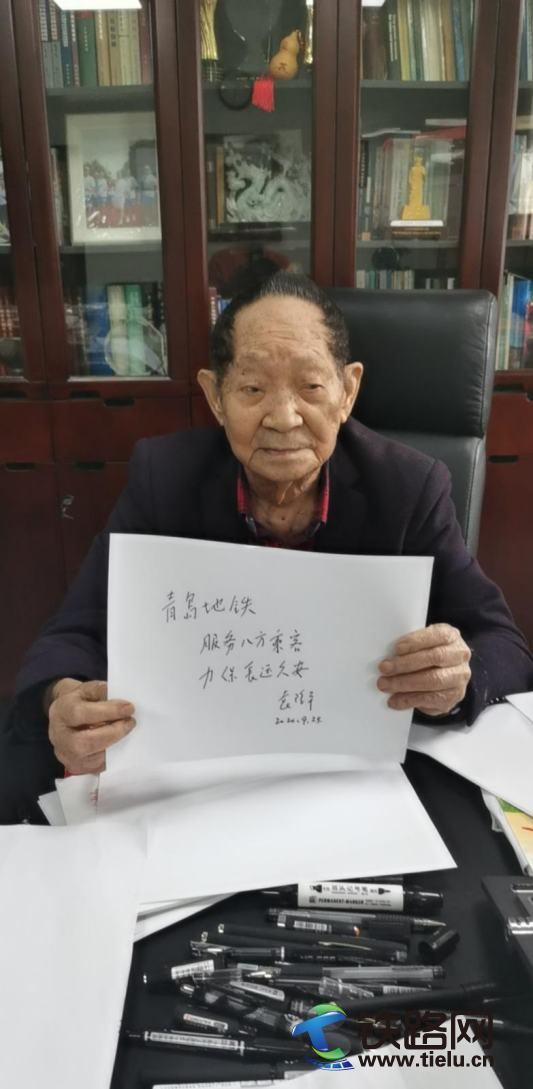 青岛地铁
服务八方乘客
力保长远久安
袁隆平
2020.9.25
PERMANENT MARKER
铁路网
www.tielu.cn